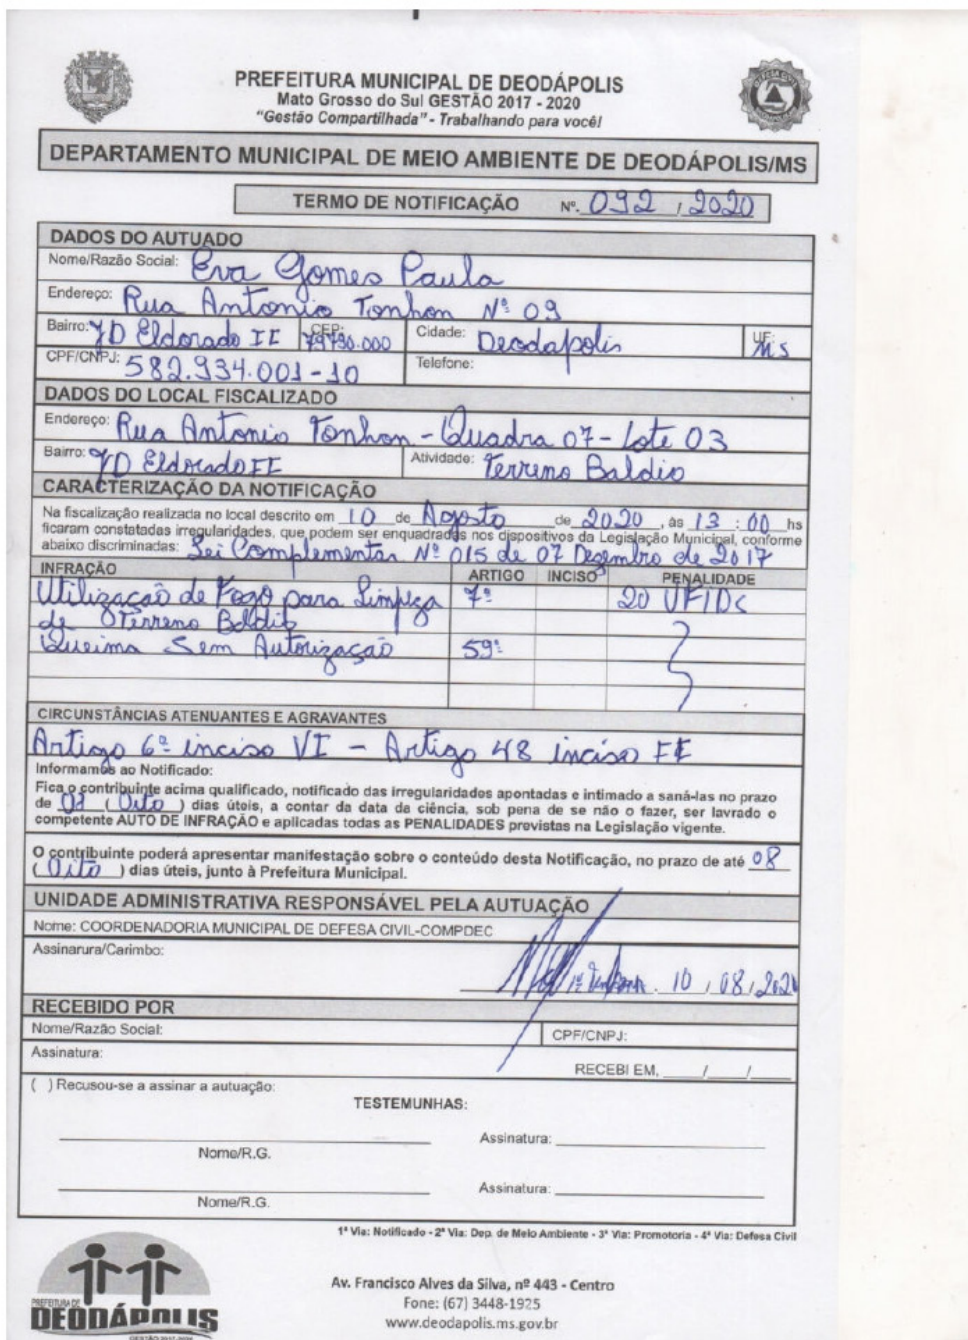 PREFEITURA MUNICIPAL DE DEODÁPOLIS
Mato Grosso do Sul GESTÃO 2017 - 2020
"Gestão Compartilhada" - Trabalhando para você!
DEFESA CIVIL
DEPARTAMENTO MUNICIPAL DE MEIO AMBIENTE DE DEODÁPOLIS/MS
TERMO DE NOTIFICAÇÃO Nº. 092 / 2020
DADOS DO AUTUADO
Nome/Razão Social: Eva Gomes Paula
Endereço: Rua Antonio Tonhon Nº 09
Bairro: JD Eldorado II CEP: 79790.000 Cidade: Deodapolis UF: MS
CPF/CNPJ: 582.934.001-10 Telefone:
DADOS DO LOCAL FISCALIZADO
Endereço: Rua Antonio Tonhon - Quadra 07 - Lote 03
Bairro: JD Eldorado II Atividade: Terreno Baldio
CARACTERIZAÇÃO DA NOTIFICAÇÃO
Na fiscalização realizada no local descrito em 10 de Agosto de 2020, às 13 : 00 hs
ficaram constatadas irregularidades, que podem ser enquadradas nos dispositivos da Legislação Municipal, conforme
abaixo discriminadas: Lei Complementar Nº 015 de 07 Dezembro de 2017
INFRAÇÃO ARTIGO INCISO PENALIDADE
Utilização de Fogo para Limpeza 7º 20 UFIDs
de Terreno Baldio
Queima Sem Autorização 59º
CIRCUNSTÂNCIAS ATENUANTES E AGRAVANTES
Artigo 6º inciso VI - Artigo 48 inciso II
Informamos ao Notificado:
Fica o contribuinte acima qualificado, notificado das irregularidades apontadas e intimado a saná-las no prazo
de 08 ( Oito ) dias úteis, a contar da data da ciência, sob pena de se não o fazer, ser lavrado o
competente AUTO DE INFRAÇÃO e aplicadas todas as PENALIDADES previstas na Legislação vigente.
O contribuinte poderá apresentar manifestação sobre o conteúdo desta Notificação, no prazo de até 08
( Oito ) dias úteis, junto à Prefeitura Municipal.
UNIDADE ADMINISTRATIVA RESPONSÁVEL PELA AUTUAÇÃO
Nome: COORDENADORIA MUNICIPAL DE DEFESA CIVIL-COMPDEC
Assinarura/Carimbo:
10 / 08 / 2020
RECEBIDO POR
Nome/Razão Social: CPF/CNPJ:
Assinatura:
RECEBI EM, ____/____/____
( ) Recusou-se a assinar a autuação:
TESTEMUNHAS:
Assinatura:
Nome/R.G.
Assinatura:
Nome/R.G.
1ª Via: Notificado - 2ª Via: Dep. de Meio Ambiente - 3ª Via: Promotoria - 4ª Via: Defesa Civil
PREFEITURA DE
DEODÁPOLIS
GESTÃO 2017-2020
Av. Francisco Alves da Silva, nº 443 - Centro
Fone: (67) 3448-1925
www.deodapolis.ms.gov.br